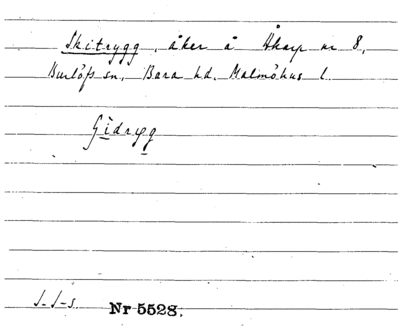 Skitrygg, åker å Åkarp nr 8,
Burlöfs sn, Bara hd. Malmöhus l.
J-J-s. Nr 5528.